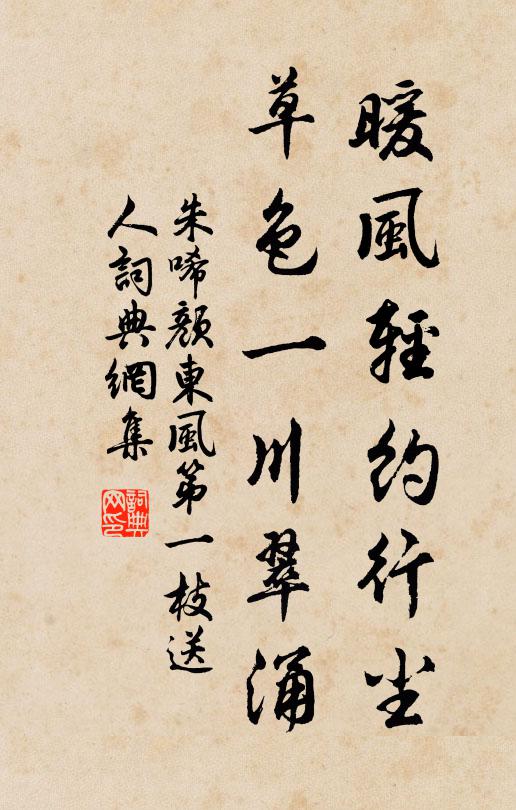 暖風輕約行尘
草色一川翠涌
朱唏顏東風第一枝送
人詞典網集
詞典网印